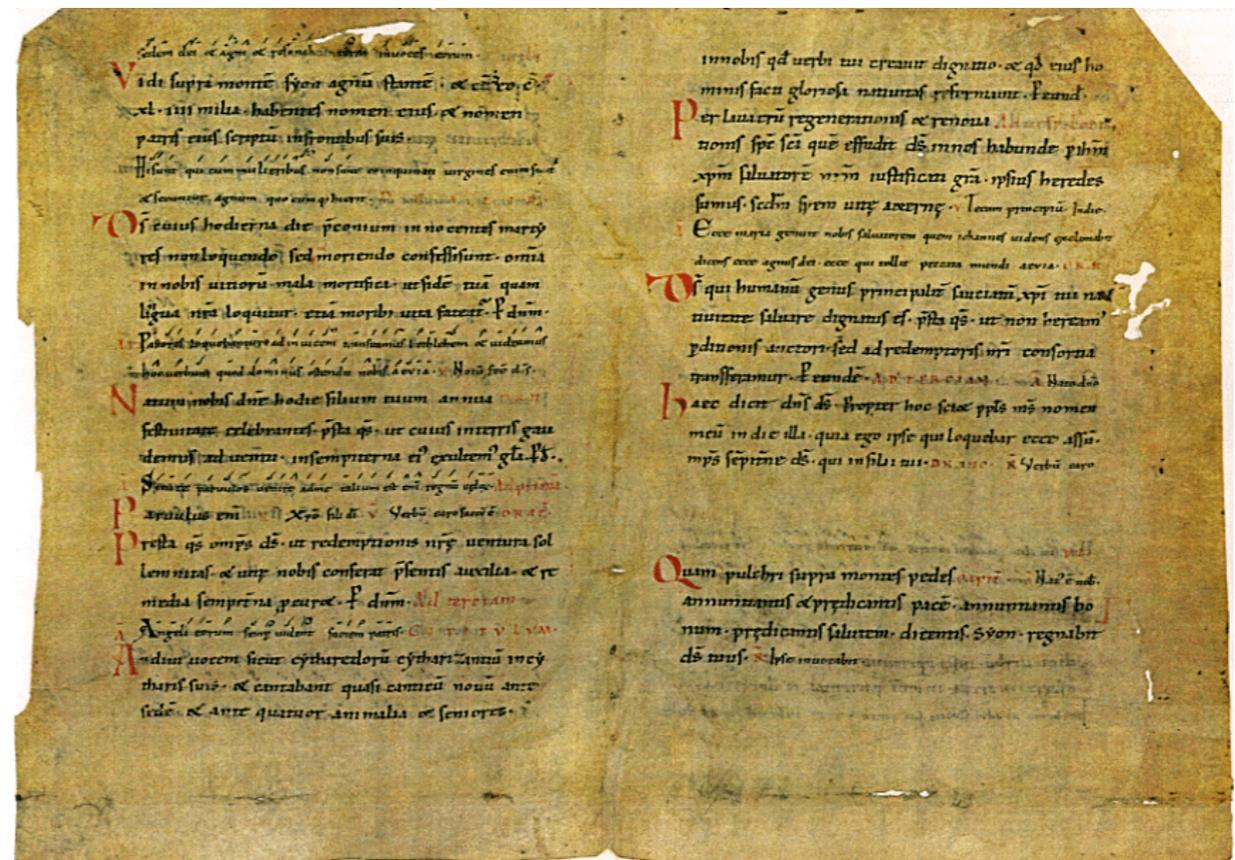 sedem dei & agni &
Vidi supra montē syon agnū stantē · & cū eo · c̄
xl · iiii milia · habentes nomen eius · & nomen
patris eius scriptū in frontibus suis ·
Hi sunt qui cum mulieribus non sunt coinquinati virgines enim sunt
& secuntur agnum quo cumq; hierit
D̄s cuius hodierna die p̄conium innocentes marty
res non loquendo sed moriendo confessi sunt · omīa
in nobis uitiorū mala mortifica · ut fidē tuā quam
lĩgua nr̄a loquitur · etiā moribꝰ uita fateat᷑ · P dūm ·
Pastores loquebantur ad inuicem transeamus bethlehem & uideamus
hoc uerbum quod dominus ostendit nobis aeuia · v Notū fec̄ dn̄s ·
Natum nobis dn̄e hodie filium tuum annua
festiuitate celebrantes · p̄sta qs̄ · ut cuius in terris gau
demus aduentu · in sempiterna eiꝰ exultem᷑ gła · P
Sinite paruulos uenire ad me talium est eni regnū celoꝝ · Ad prima
Paruulus eni Xp̄o fili di v Verbū caro factū ē ORAT̄ ·
Presta qs̄ omp̄s ds̄ · ut redemptionis nr̄ę uentura sol
lemnitas · & uitę nobis conferat p̄sentis auxilia · & re
media sempit̄na · P dūm · Ad terciam
Angeli eorum semp̄ uident faciem patris · CAPITVLVM ·
Audiui uocem sicut cytharedorū cytharizantiū in cy
tharis suis · & cantabant quasi canticū nouū ante
sedē · & ante quatuor animalia & seniores ·
in nobis qd̄ uerbi tui creauit dignatio · & qd̄ eius ho
minis facti gloriosa natiuitas reformauit · P eund̄ ·
Per lauacrū regenerationis & renoua
tionis sp̄c sc̄i quē effudit ds̄ in nos habunde p ihm̄
xp̄m saluatorē nr̄m iustificati gr̄a · ipsius heredes
sumus · secdm̄ spem uitę aeternę · v Tecum principiū · In die ·
Ecce maria genuit nobis saluatorem quem iohannes uidens exclamabit
dicens ecce agnus dei · ecce qui tollit peccata mundi aeuia ·
D̄s qui humanū genus principalit̄ sauciatū xp̄i tui na
tiuitate saluare dignatus es · p̄sta qs̄ · ut non hereamꝰ
pditionis auctori · sed ad redemptoris nr̄i consortia
transferamur · P eundē · AD TERCIAM A Nato dn̄o
Haec dicit dn̄s ds̄ · Propter hoc sciet ppls̄ ms̄ nomen
meū in die illa · quia ego ipse qui loquebar ecce assū ·
mp̄s sepit̄ne ds̄ · qui in filii tui · R Verbū caro
Quam pulchri supra montes pedes
annuntiantis & prędicantis pacē · annuntiantis bo
num · prędicantis salutem · dicentis · syon · regnabit
ds̄ tuus · R Ipse inuocabit ·